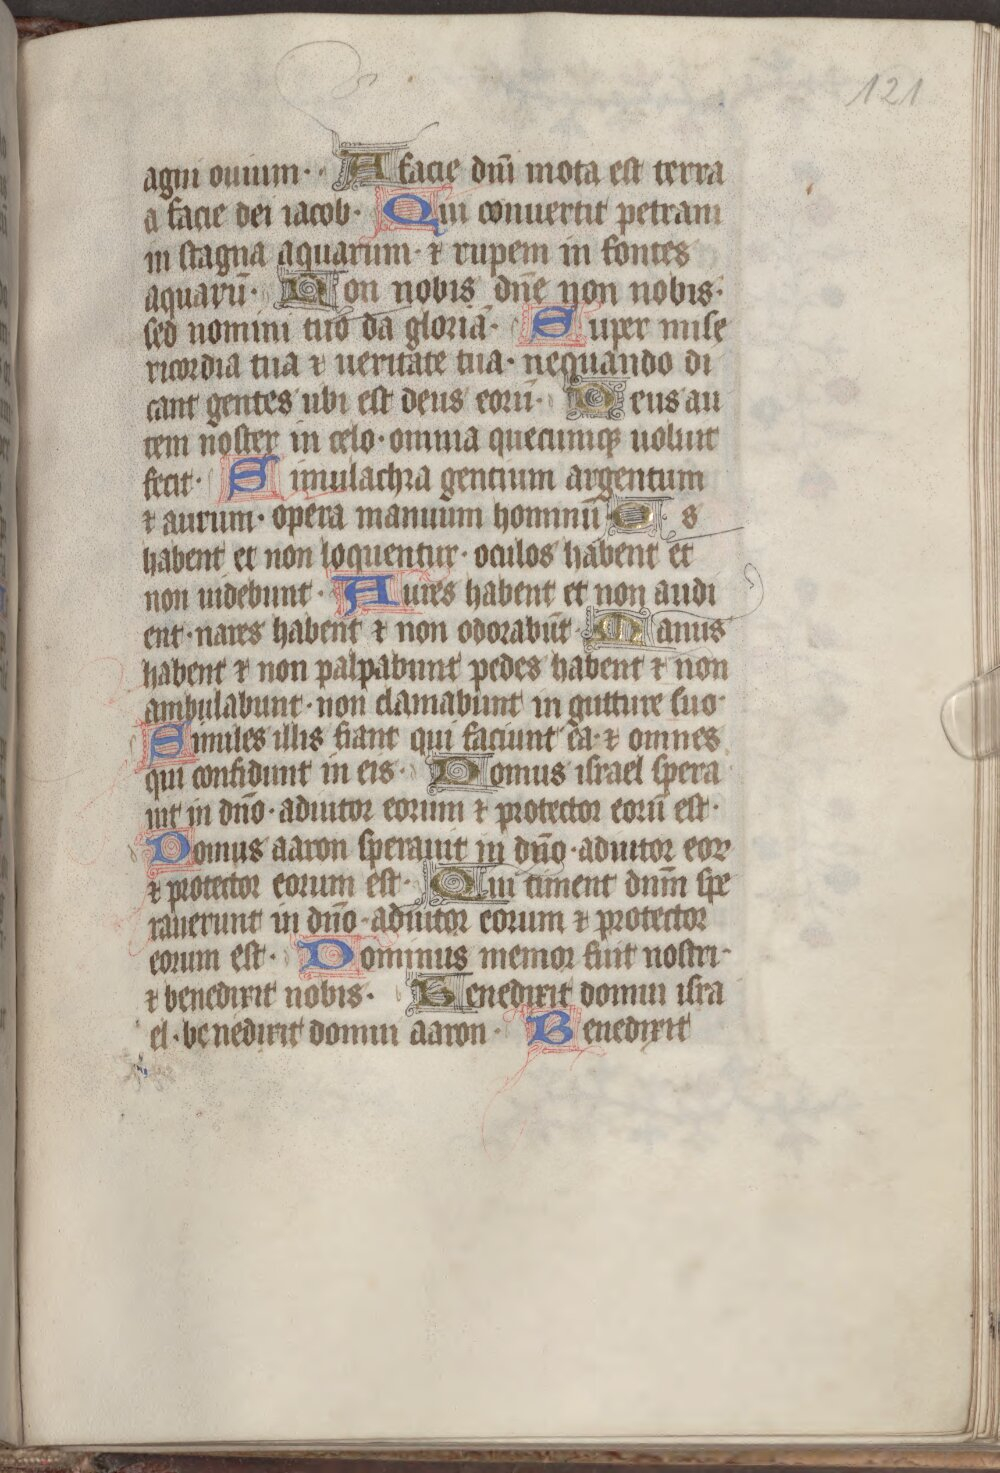 121
agni ouium· A facie dnī mota est terra
a facie dei iacob· Qui conuertit petram
in stagna aquarum· ⁊ rupem in fontes
aquarū· Non nobis dn̄e non nobis·
sed nomini tuo da gloriā· Super mise
ricordia tua ⁊ ueritate tua· nequando di
cant gentes ubi est deus eorū· Deus au
tem noster in celo· omnia quecumqꝫ uoluit
fecit· Simulachra gentium argentum
⁊ aurum· opera manuum hominū Os
habent et non loquentur· oculos habent et
non uidebunt· Aures habent et non audi
ent· nares habent ⁊ non odorabūt· Manus
habent ⁊ non palpabunt pedes habent ⁊ non
ambulabunt· non clamabunt in gutture suo·
Similes illis fiant qui faciunt ea· ⁊ omnes
qui confidunt in eis· Domus israel spera
uit in dn̄o· adiutor eorum ⁊ protector eorū est·
Domus aaron sperauit in dn̄o· adiutor eoꝝ
⁊ protector eorum est· Qui timent dnm̄ spe
rauerunt in dn̄o· adiutor eorum ⁊ protector
eorum est· Dominus memor fuit nostri·
⁊ benedixit nobis· Benedixit domui isra
el· benedixit domui aaron· Benedixit